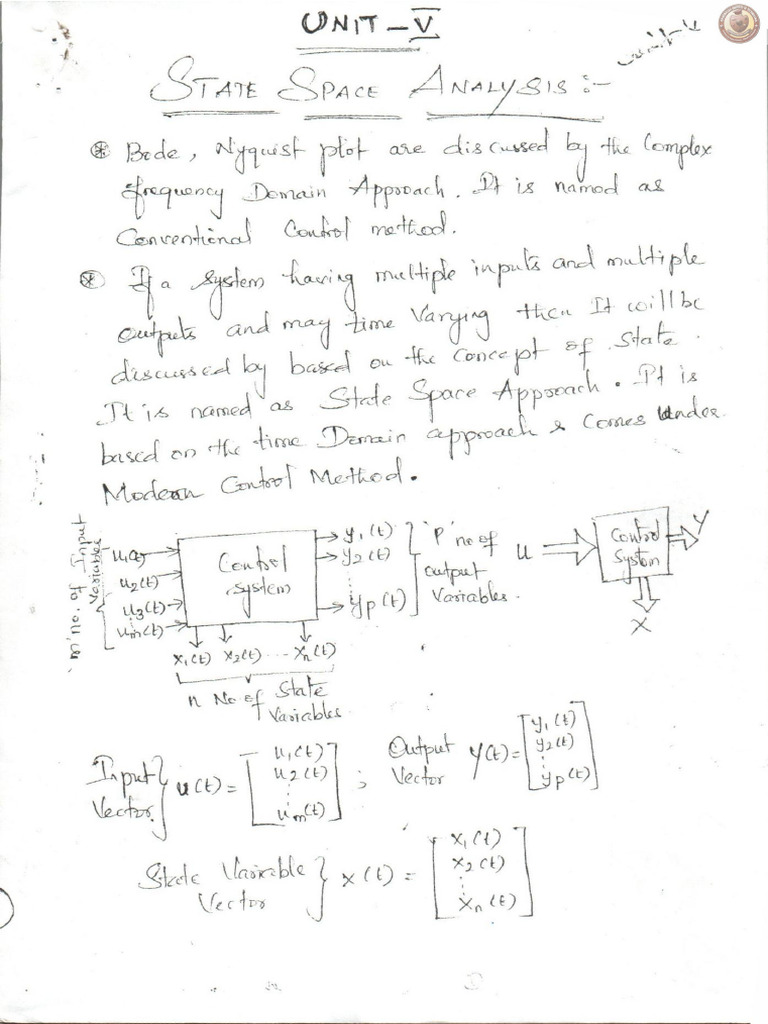 UNIT - V
Unit-V
STATE SPACE ANALYSIS :-
Bode, Nyquist plot are discussed by the Complex
frequency Domain Approach. It is named as
Conventional Control method.
If a system having multiple inputs and multiple
outputs and may time varying then It will be
discussed by based on the concept of state.
It is named as State Space Approach. It is
based on the time Domain approach & Comes Under
Modern Control Method.
'm' no. of Input Variables
u1(t)
u2(t)
u3(t)
um(t)
Control
system
y1(t)
y2(t)
yp(t)
'P' no of
output
Variables.
u
Control
System
Y
X
x1(t) x2(t) ... xn(t)
n No of State
Variables
Input
Vector
u(t) =
u1(t)
u2(t)
um(t)
;
Output
Vector
y(t) =
y1(t)
y2(t)
yp(t)
State Variable
Vector
x(t) =
x1(t)
x2(t)
xn(t)